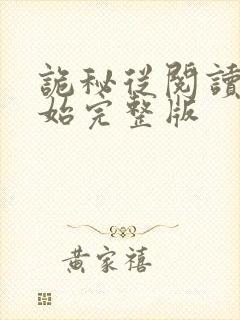 詭秘從閱讀
始完整版
黃家禧